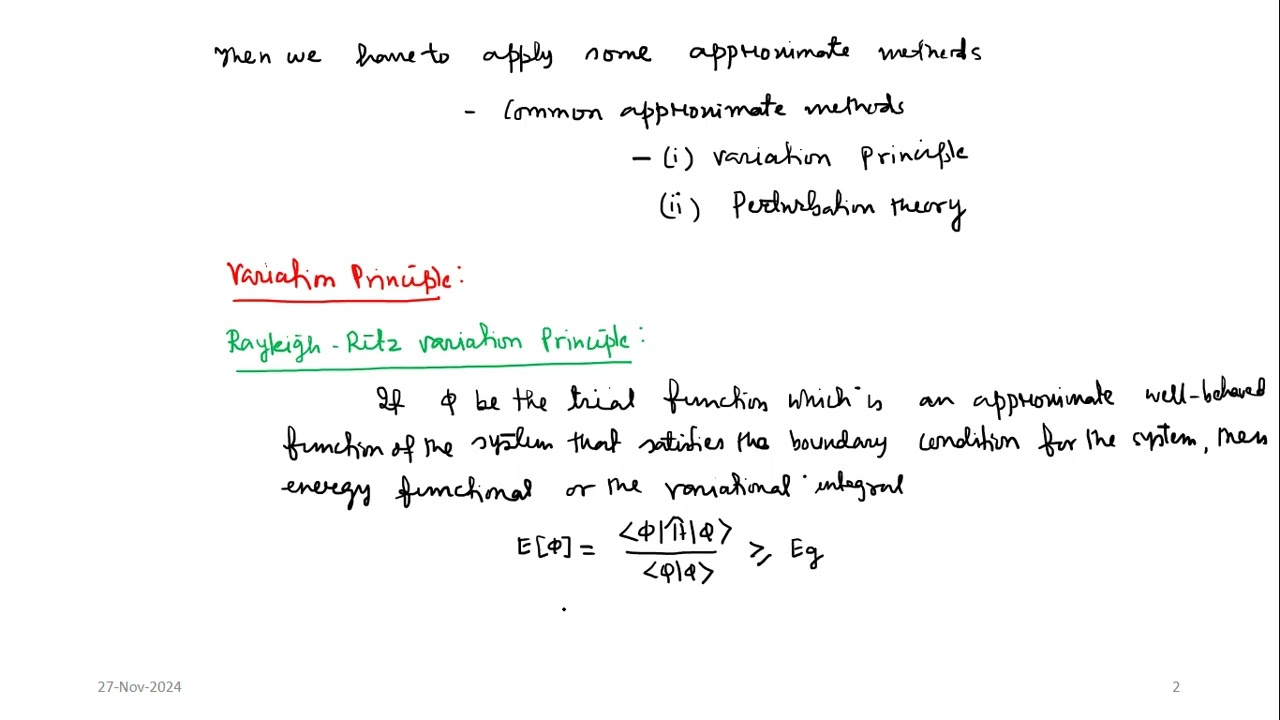 Then we have to apply some approximate methods
- Common approximate methods
- (i) variation Principle
(ii) Perturbation theory
Variation Principle:
Rayleigh - Ritz variation Principle:
If φ be the trial function which is an approximate well-behaved
function of the system that satisfies the boundary condition for the system, then
energy functional or the variational integral
E[φ] = <φ|Ĥ|φ> / <φ|φ> ⩾ Eg
27-Nov-2024
2